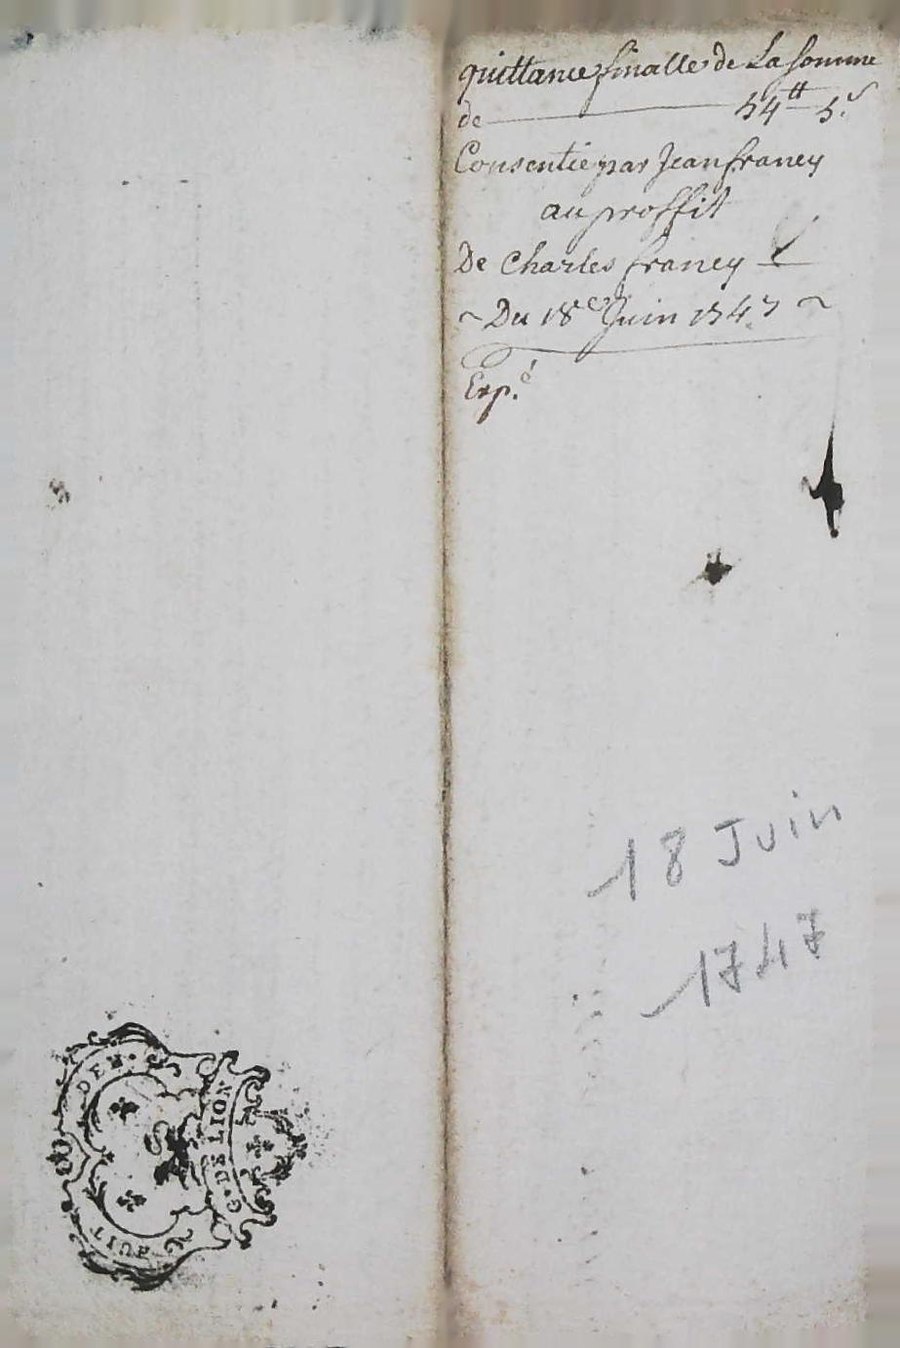 quittance finalle de La somme
de 54 ₶ 5.s
Consentie par Jean francy
au proffit
De Charles francy
~ Du 18e Juin 1747 ~
Exp.é
18 Juin
1747
G. DE LION
HUIT DEN.